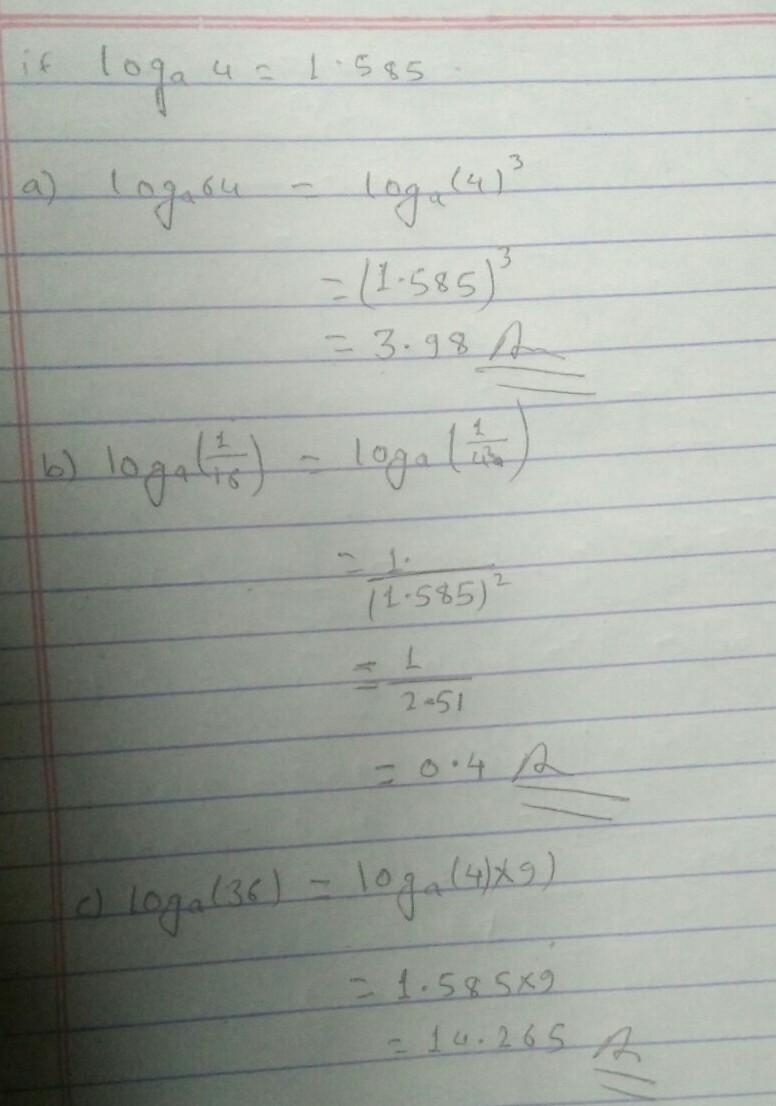 if logₐ 4 = 1.585
a) logₐ64 = logₐ(4)³
= (1.585)³
= 3.98 A
b) logₐ(1/16) = logₐ(1/4²)
= 1/(1.585)²
= 1/2.51
= 0.4 A
c) logₐ(36) = logₐ(4)×9)
= 1.585×9
= 14.265 A